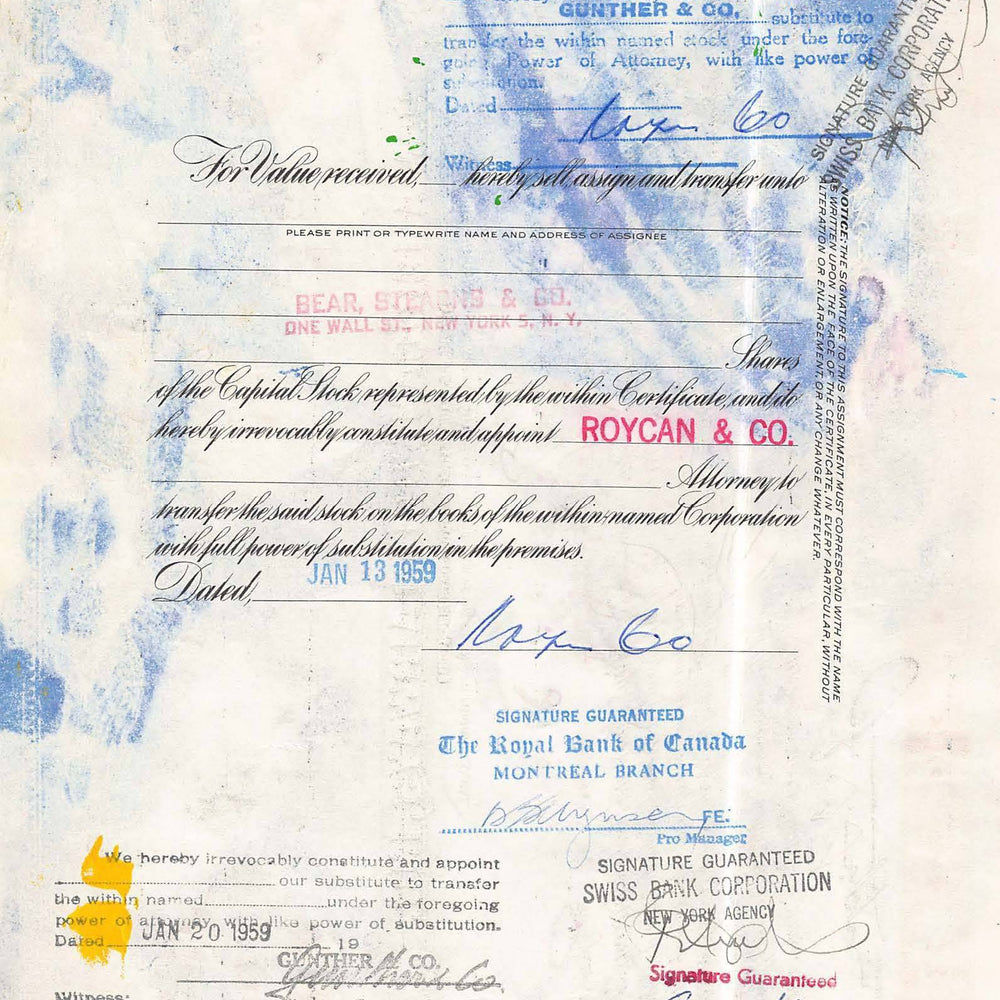 GUNTHER & CO. substitute to
transfer the within named stock under the fore-
going Power of Attorney, with like power of
substitution.
Dated
Roycan & Co
Witness
SIGNATURE GUARANTEED
SWISS BANK CORPORATION
NEW YORK AGENCY
For Value received, hereby sell, assign and transfer unto
PLEASE PRINT OR TYPEWRITE NAME AND ADDRESS OF ASSIGNEE
BEAR, STEARNS & CO.
ONE WALL ST., NEW YORK 5, N. Y.
Shares
of the Capital Stock represented by the within Certificate, and do
hereby irrevocably constitute and appoint ROYCAN & CO.
Attorney to
transfer the said stock on the books of the within-named Corporation
with full power of substitution in the premises.
Dated, JAN 13 1959
Roycan & Co
NOTICE: THE SIGNATURE TO THIS ASSIGNMENT MUST CORRESPOND WITH THE NAME
AS WRITTEN UPON THE FACE OF THE CERTIFICATE, IN EVERY PARTICULAR, WITHOUT
ALTERATION OR ENLARGEMENT, OR ANY CHANGE WHATEVER.
SIGNATURE GUARANTEED
The Royal Bank of Canada
MONTREAL BRANCH
FE:
Pro Manager
We hereby irrevocably constitute and appoint
our substitute to transfer
the within named under the foregoing
power of attorney, with like power of substitution.
Dated JAN 20 1959 19
GUNTHER & CO.
Gunther & Co.
Witness:
SIGNATURE GUARANTEED
SWISS BANK CORPORATION
NEW YORK AGENCY
Signature Guaranteed